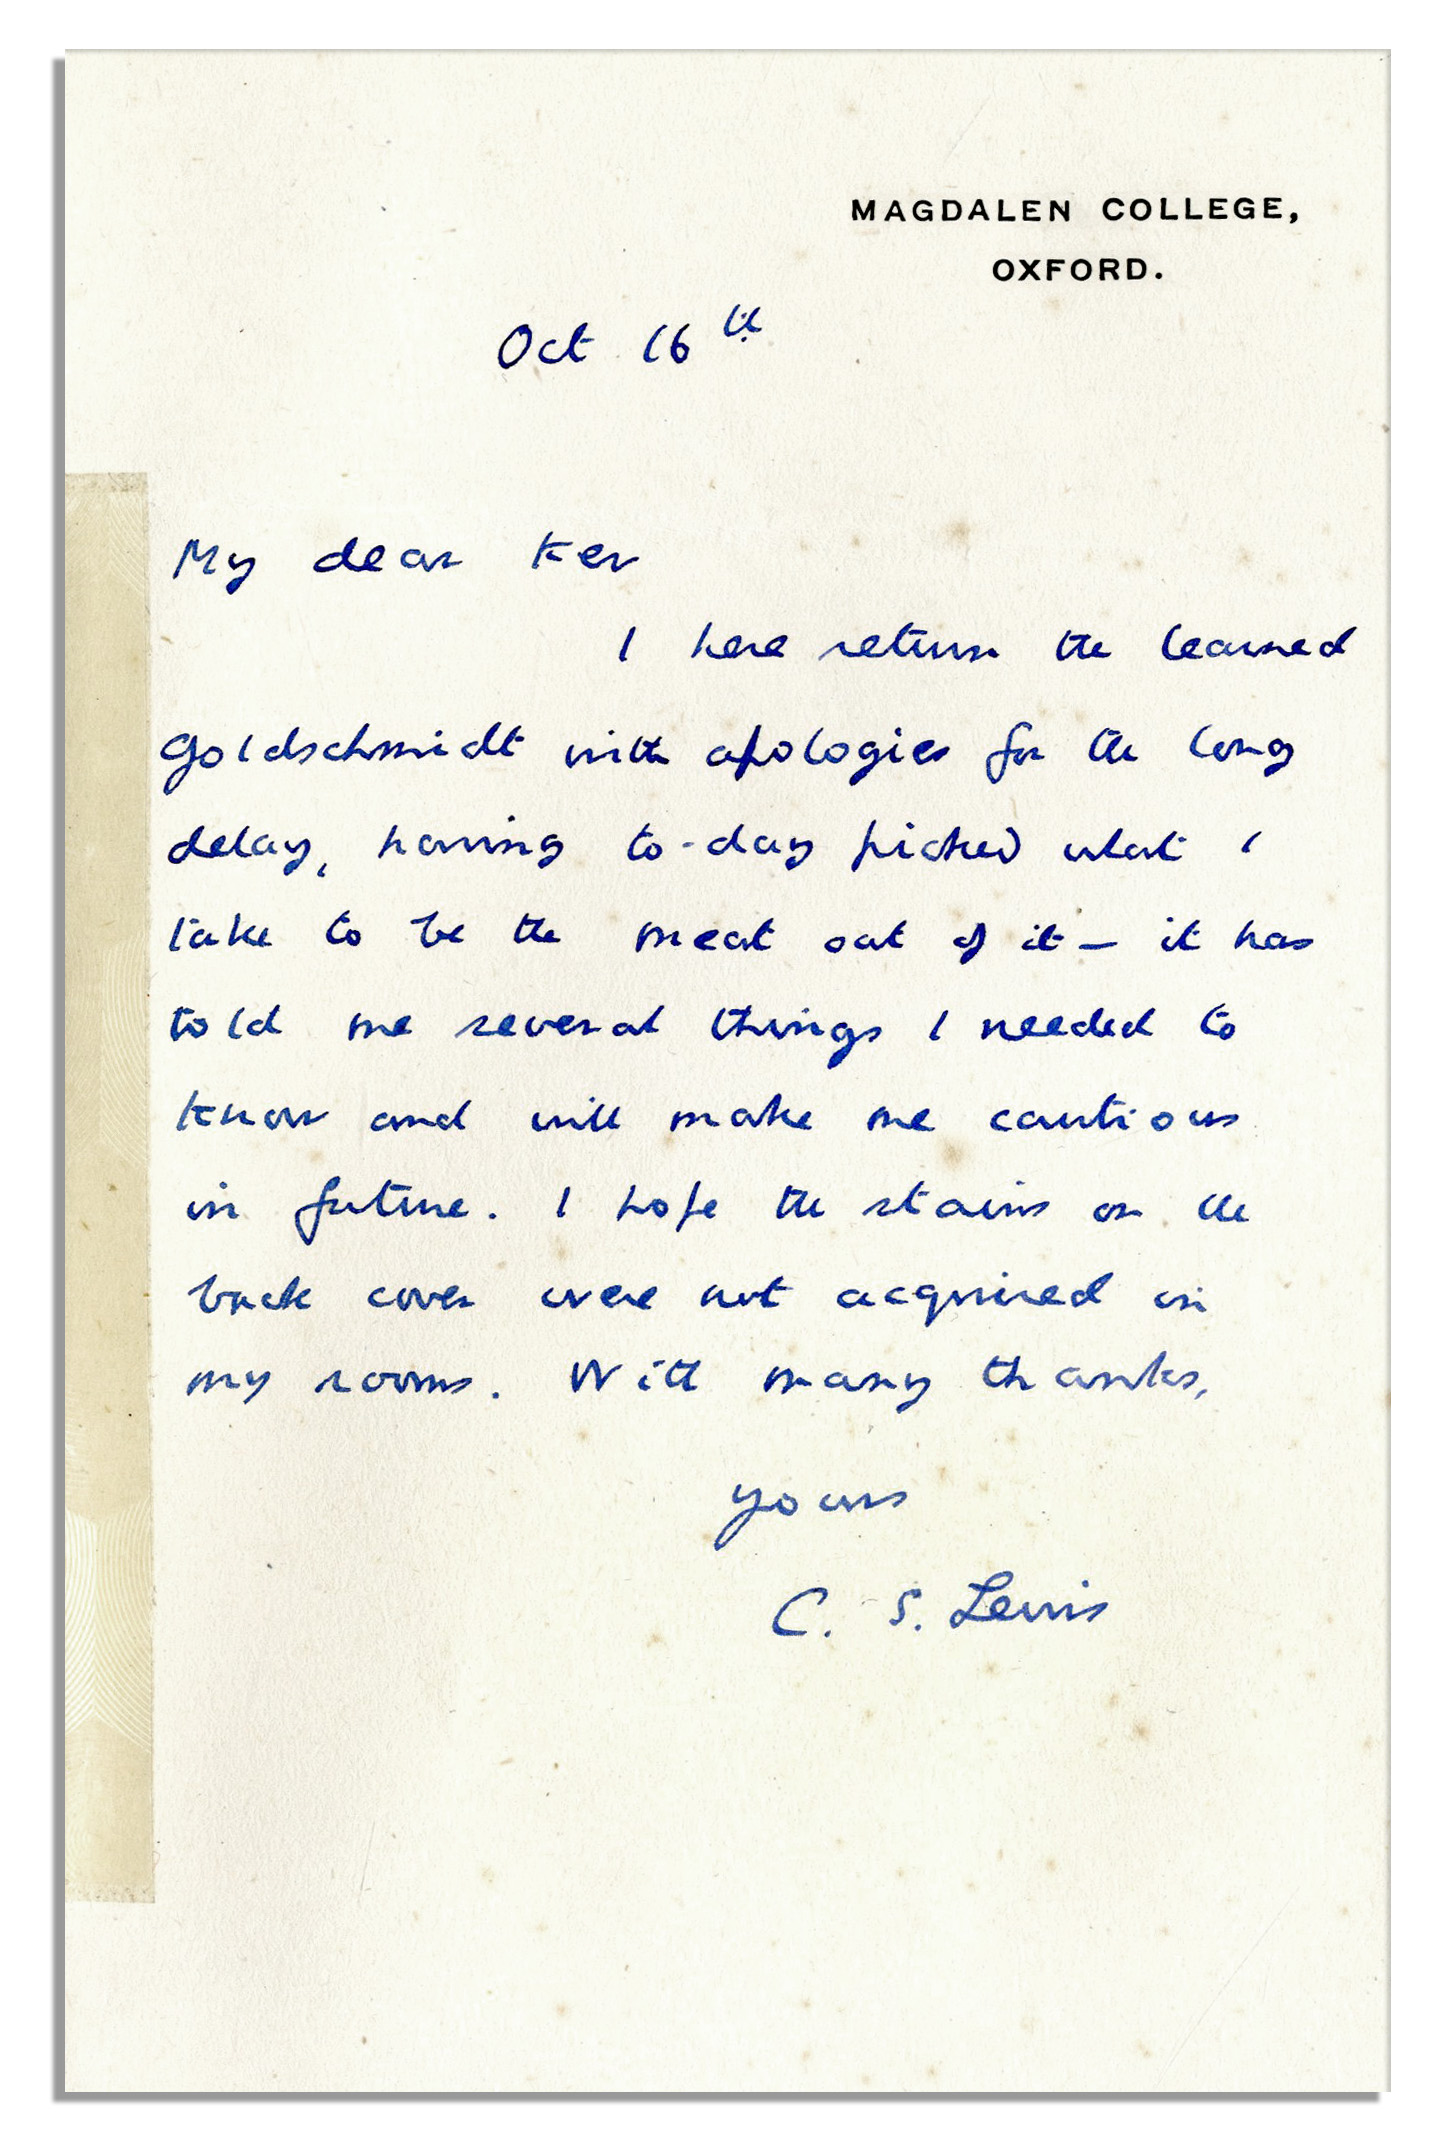 MAGDALEN COLLEGE,
OXFORD.
Oct 16th
My dear Ker
I here return the learned
Goldschmidt with apologies for the long
delay, having to-day picked what I
take to be the meat out of it – it has
told me several things I needed to
know and will make me cautious
in future. I hope the stains on the
back cover were not acquired in
my rooms. With many thanks,
yours
C. S. Lewis